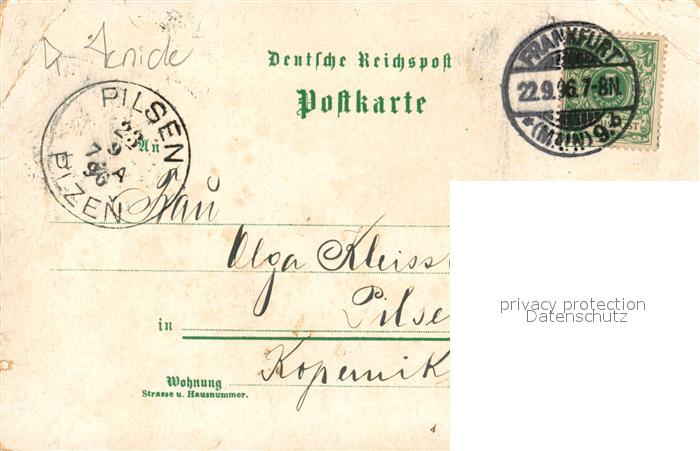 Deutsche Reichspost
Postkarte
FRANKFURT
22.9.96.7-8N.
* (MAIN) 9.b.
PILSEN
23
9
7 A
96
PLZEN
An
Frau
Olga Kleiss
Pilse
in
Kopernik
Wohnung
Strasse u. Hausnummer.
4
privacy protection
Datenschutz